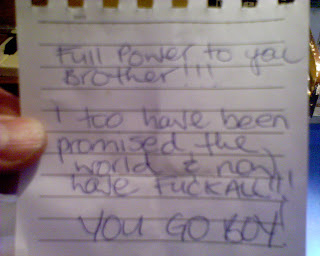 Full Power to you
Brother!!!
I too have been
promised the
world & now
have FUCKALL!!!
YOU GO BOY